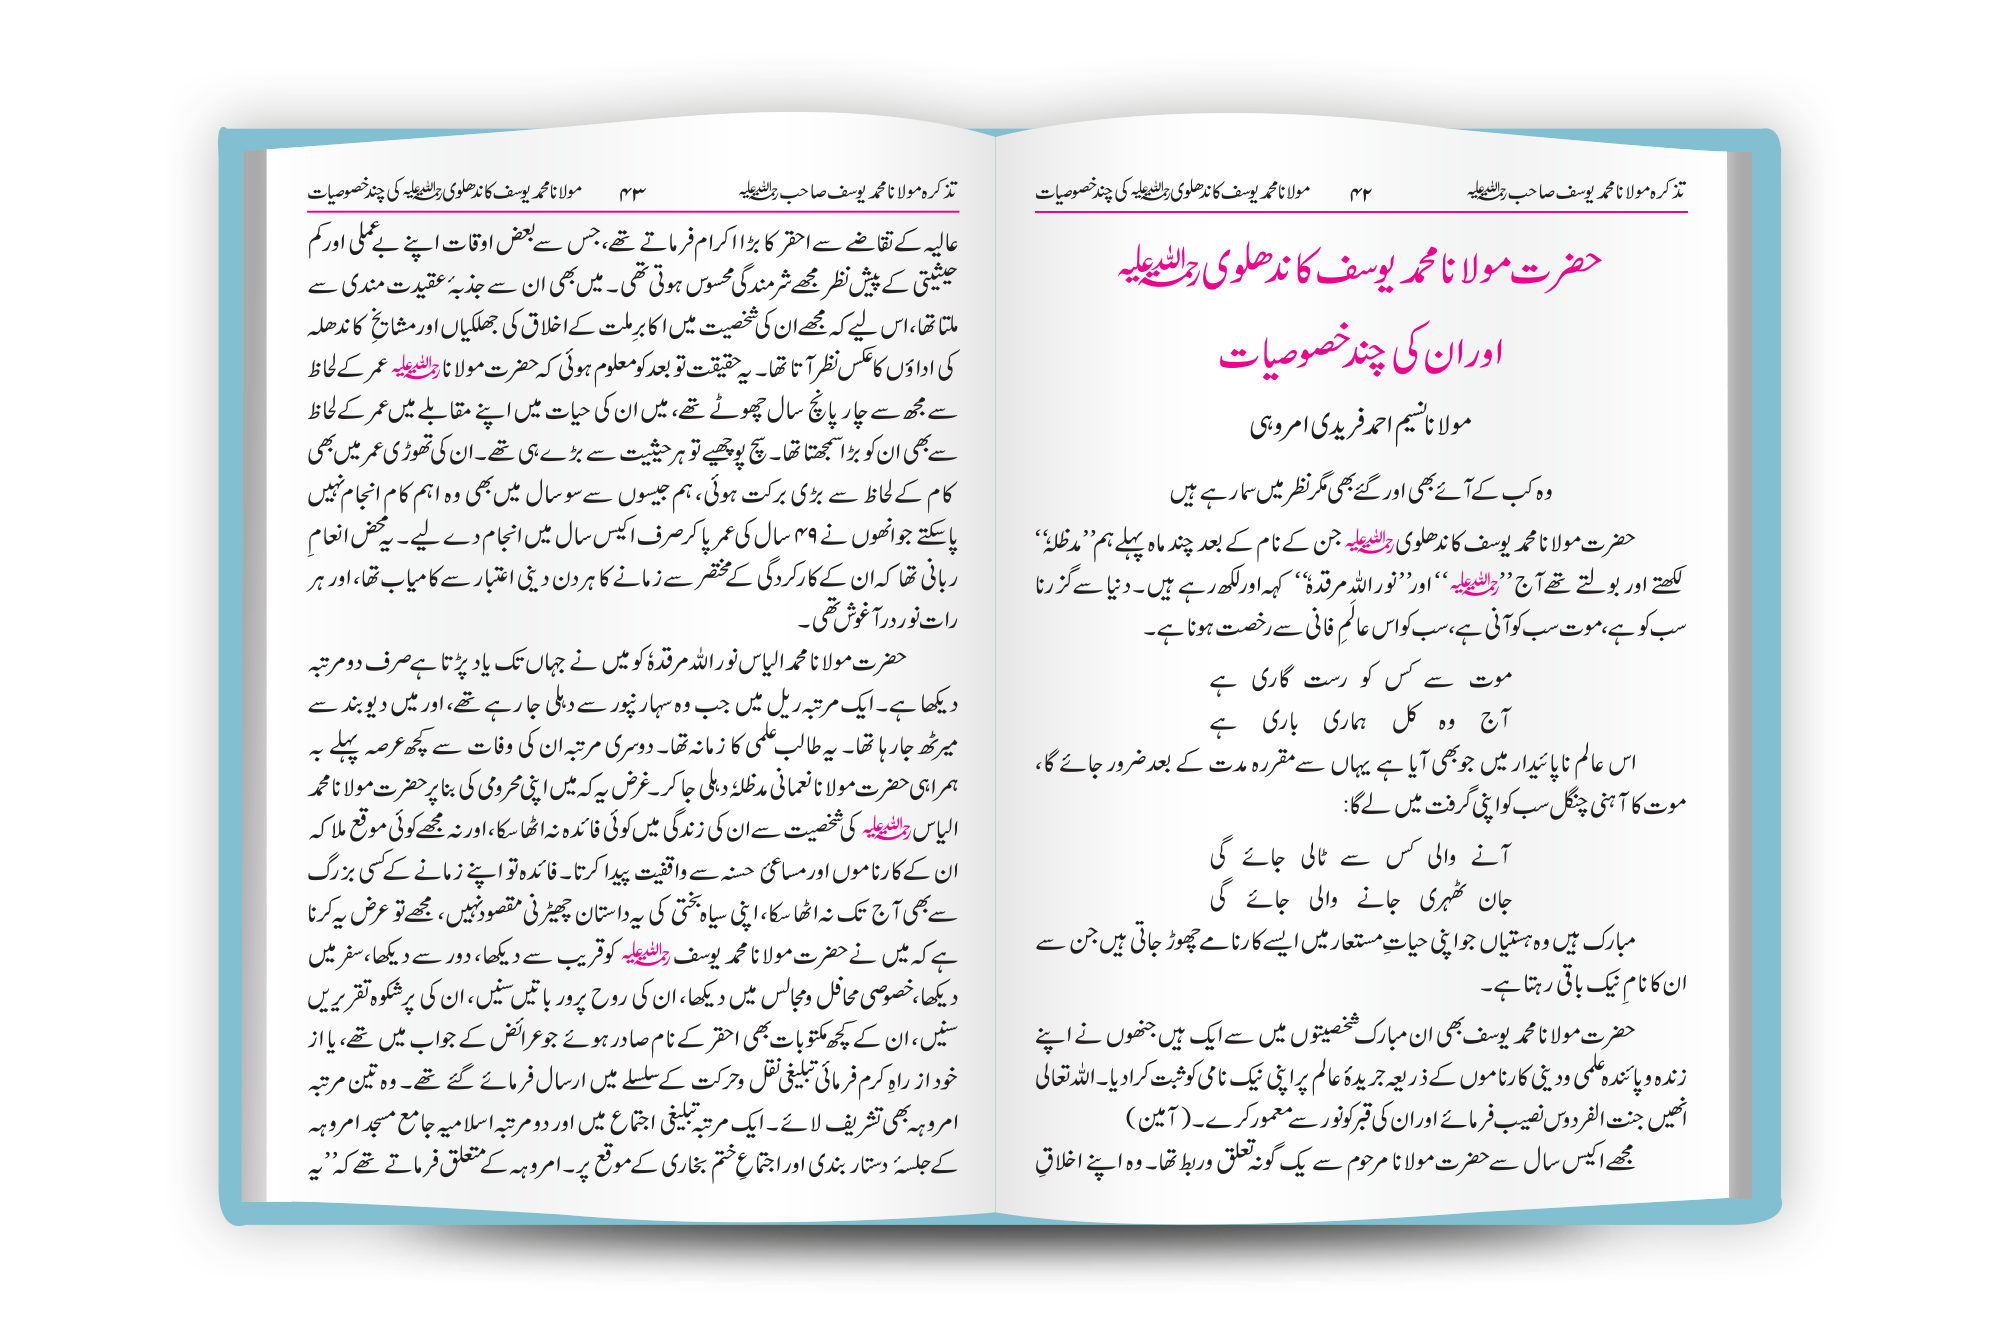 تذکرہ مولانا محمد یوسف صاحب رحمۃ اللہ علیہ ۴۲ مولانا محمد یوسف کاندھلوی رحمۃ اللہ علیہ کی چند خصوصیات
حضرت مولانا محمد یوسف کاندھلوی رحمۃ اللہ علیہ
اور ان کی چند خصوصیات
مولانا نسیم احمد فریدی امروہی
وہ کب کے آئے بھی اور گئے بھی مگر نظر میں سما رہے ہیں
حضرت مولانا محمد یوسف کاندھلوی رحمۃ اللہ علیہ جن کے نام کے بعد چند ماہ پہلے ہم ’’مدظلہٗ‘‘
لکھتے اور بولتے تھے آج ’’رحمۃ اللہ علیہ‘‘ اور ’’نور اللہ مرقدہٗ‘‘ کہہ اور لکھ رہے ہیں۔ دنیا سے گزرنا
سب کو ہے، موت سب کو آنی ہے، سب کو اس عالَمِ فانی سے رخصت ہونا ہے۔
موت سے کس کو رست گاری ہے
آج وہ کل ہماری باری ہے
اس عالم ناپائیدار میں جو بھی آیا ہے یہاں سے مقررہ مدت کے بعد ضرور جائے گا،
موت کا آہنی چنگل سب کو اپنی گرفت میں لے گا:
آنے والی کس سے ٹالی جائے گی
جان ٹھہری جانے والی جائے گی
مبارک ہیں وہ ہستیاں جو اپنی حیاتِ مستعار میں ایسے کارنامے چھوڑ جاتی ہیں جن سے
ان کا نامِ نیک باقی رہتا ہے۔
حضرت مولانا محمد یوسف بھی ان مبارک شخصیتوں میں سے ایک ہیں جنھوں نے اپنے
زندہ و پائندہ علمی و دینی کارناموں کے ذریعہ جریدۂ عالم پر اپنی نیک نامی کو ثبت کرا دیا۔ اللہ تعالی
انھیں جنت الفردوس نصیب فرمائے اور ان کی قبر کو نور سے معمور کرے۔ (آمین)
مجھے اکیس سال سے حضرت مولانا مرحوم سے یک گونہ تعلق و ربط تھا۔ وہ اپنے اخلاقِ
تذکرہ مولانا محمد یوسف صاحب رحمۃ اللہ علیہ ۴۳ مولانا محمد یوسف کاندھلوی رحمۃ اللہ علیہ کی چند خصوصیات
عالیہ کے تقاضے سے احقر کا بڑا اکرام فرماتے تھے، جس سے بعض اوقات اپنے بے عملی اور کم
حیثیتی کے پیش نظر مجھے شرمندگی محسوس ہوتی تھی۔ میں بھی ان سے جذبۂ عقیدت مندی سے
ملتا تھا، اس لیے کہ مجھے ان کی شخصیت میں اکابرِ ملت کے اخلاق کی جھلکیاں اور مشایخِ کاندھلہ
کی اداؤں کا عکس نظر آتا تھا۔ یہ حقیقت تو بعد کو معلوم ہوئی کہ حضرت مولانا رحمۃ اللہ علیہ عمر کے لحاظ
سے مجھ سے چار پانچ سال چھوٹے تھے، میں ان کی حیات میں اپنے مقابلے میں عمر کے لحاظ
سے بھی ان کو بڑا سمجھتا تھا۔ سچ پوچھیے تو ہر حیثیت سے بڑے ہی تھے۔ ان کی تھوڑی عمر میں بھی
کام کے لحاظ سے بڑی برکت ہوئی، ہم جیسوں سے سو سال میں بھی وہ اہم کام انجام نہیں
پا سکتے جو انھوں نے ۴۹ سال کی عمر پا کر صرف اکیس سال میں انجام دے لیے۔ یہ محض انعامِ
ربانی تھا کہ ان کے کارکردگی کے مختصر سے زمانے کا ہر دن دینی اعتبار سے کامیاب تھا، اور ہر
رات نور در آغوش تھی۔
حضرت مولانا محمد الیاس نور اللہ مرقدہٗ کو میں نے جہاں تک یاد پڑتا ہے صرف دو مرتبہ
دیکھا ہے۔ ایک مرتبہ ریل میں جب وہ سہارنپور سے دہلی جا رہے تھے، اور میں دیوبند سے
میرٹھ جا رہا تھا۔ یہ طالب علمی کا زمانہ تھا۔ دوسری مرتبہ ان کی وفات سے کچھ عرصہ پہلے بہ
ہمراہی حضرت مولانا نعمانی مدظلہٗ دہلی جا کر۔ غرض یہ کہ میں اپنی محرومی کی بنا پر حضرت مولانا محمد
الیاس رحمۃ اللہ علیہ کی شخصیت سے ان کی زندگی میں کوئی فائدہ نہ اٹھا سکا، اور نہ مجھے کوئی موقع ملا کہ
ان کے کارناموں اور مساعیٔ حسنہ سے واقفیت پیدا کرتا۔ فائدہ تو اپنے زمانے کے کسی بزرگ
سے بھی آج تک نہ اٹھا سکا، اپنی سیاہ بختی کی یہ داستان چھیڑنی مقصود نہیں، مجھے تو عرض یہ کرنا
ہے کہ میں نے حضرت مولانا محمد یوسف رحمۃ اللہ علیہ کو قریب سے دیکھا، دور سے دیکھا، سفر میں
دیکھا، خصوصی محافل و مجالس میں دیکھا، ان کی روح پرور باتیں سنیں، ان کی پر شکوہ تقریریں
سنیں، ان کے کچھ مکتوبات بھی احقر کے نام صادر ہوئے جو عرائض کے جواب میں تھے، یا از
خود از راہِ کرم فرمائی تبلیغی نقل و حرکت کے سلسلے میں ارسال فرمائے گئے تھے۔ وہ تین مرتبہ
امروہہ بھی تشریف لائے۔ ایک مرتبہ تبلیغی اجتماع میں اور دو مرتبہ اسلامیہ جامع مسجد امروہہ
کے جلسۂ دستار بندی اور اجتماعِ ختم بخاری کے موقع پر۔ امروہہ کے متعلق فرماتے تھے کہ ’’یہ